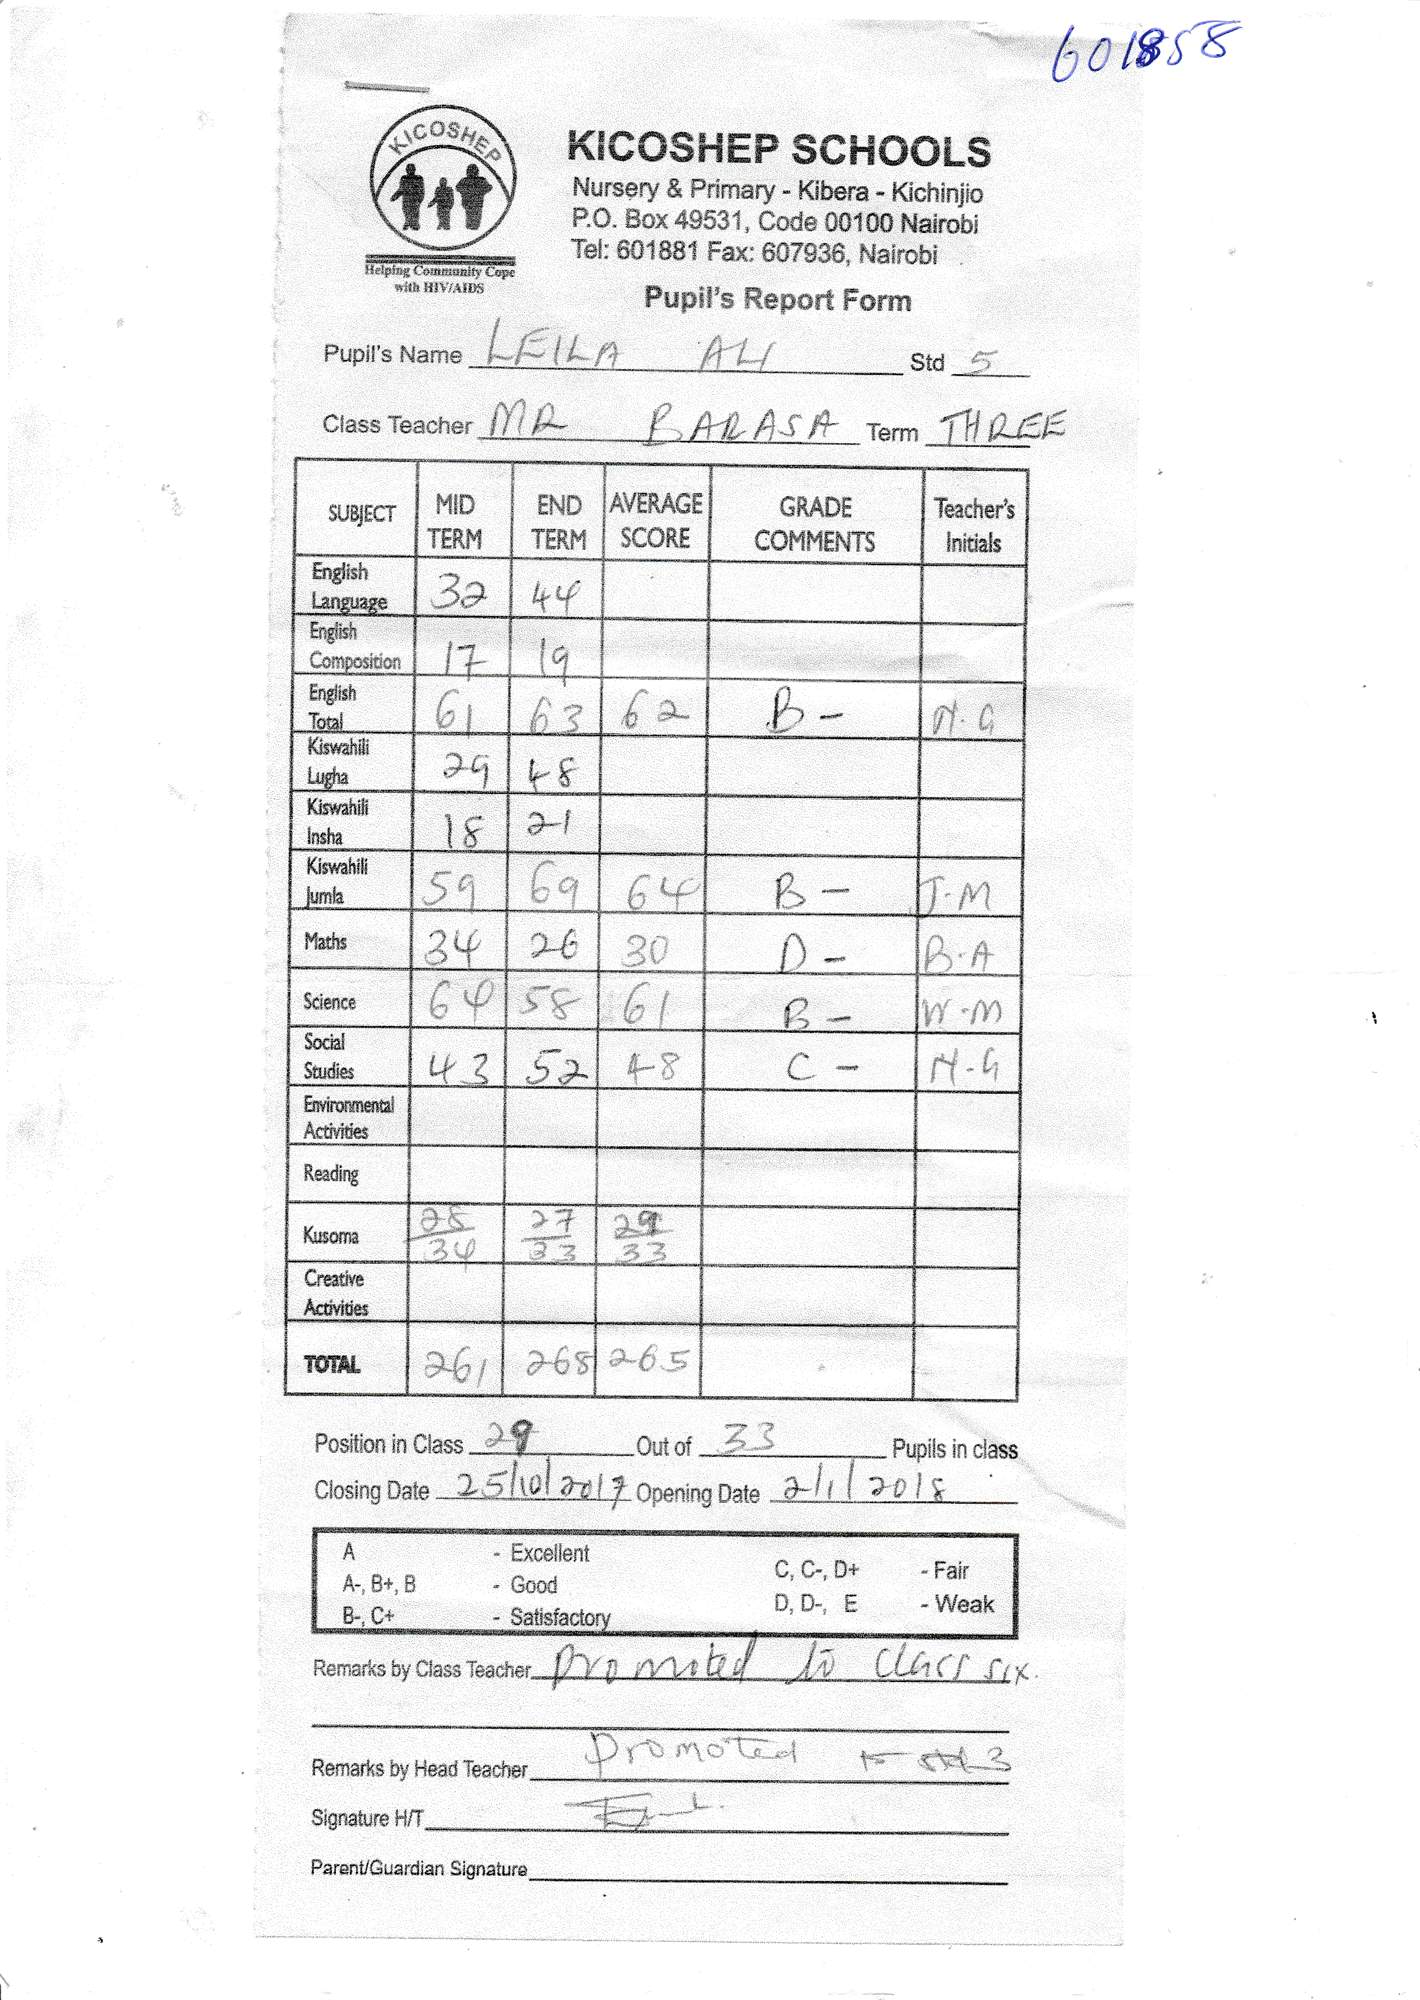 601858
KICOSHEP
Helping Community Cope
with HIV/AIDS
KICOSHEP SCHOOLS
Nursery & Primary - Kibera - Kichinjio
P.O. Box 49531, Code 00100 Nairobi
Tel: 601881 Fax: 607936, Nairobi
Pupil's Report Form
Pupil's Name LEILA ALI Std 5
Class Teacher MR BARASA Term THREE
SUBJECT MID TERM END TERM AVERAGE SCORE GRADE COMMENTS Teacher's Initials
English Language 32 44
English Composition 17 19
English Total 61 63 62 B- N.G
Kiswahili Lugha 29 48
Kiswahili Insha 18 21
Kiswahili Jumla 59 69 64 B- J.M
Maths 34 26 30 D- B.A
Science 64 58 61 B- W.M
Social Studies 43 52 48 C- N.G
Environmental Activities
Reading
Kusoma 28/34 27/33 29/33
Creative Activities
TOTAL 261 268 265
Position in Class 29 Out of 33 Pupils in class
Closing Date 25/10/2017 Opening Date 2/1/2018
A - Excellent
A-, B+, B - Good
B-, C+ - Satisfactory
C, C-, D+ - Fair
D, D-, E - Weak
Remarks by Class Teacher Promoted to class six.
Remarks by Head Teacher Promoted to
Signature H/T
Parent/Guardian Signature